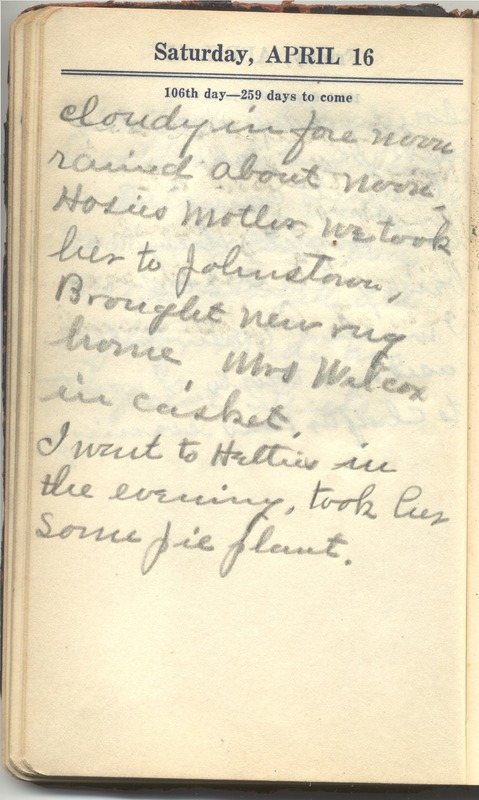 Saturday, APRIL 16
106th day—259 days to come
cloudy in fore noon
rained about noon,
Hosies Mother, we took
her to Johnstown,
Brought new rug
home Mrs Wilcox
in casket.
I went to Hetties in
the evening, took her
some pie plant.